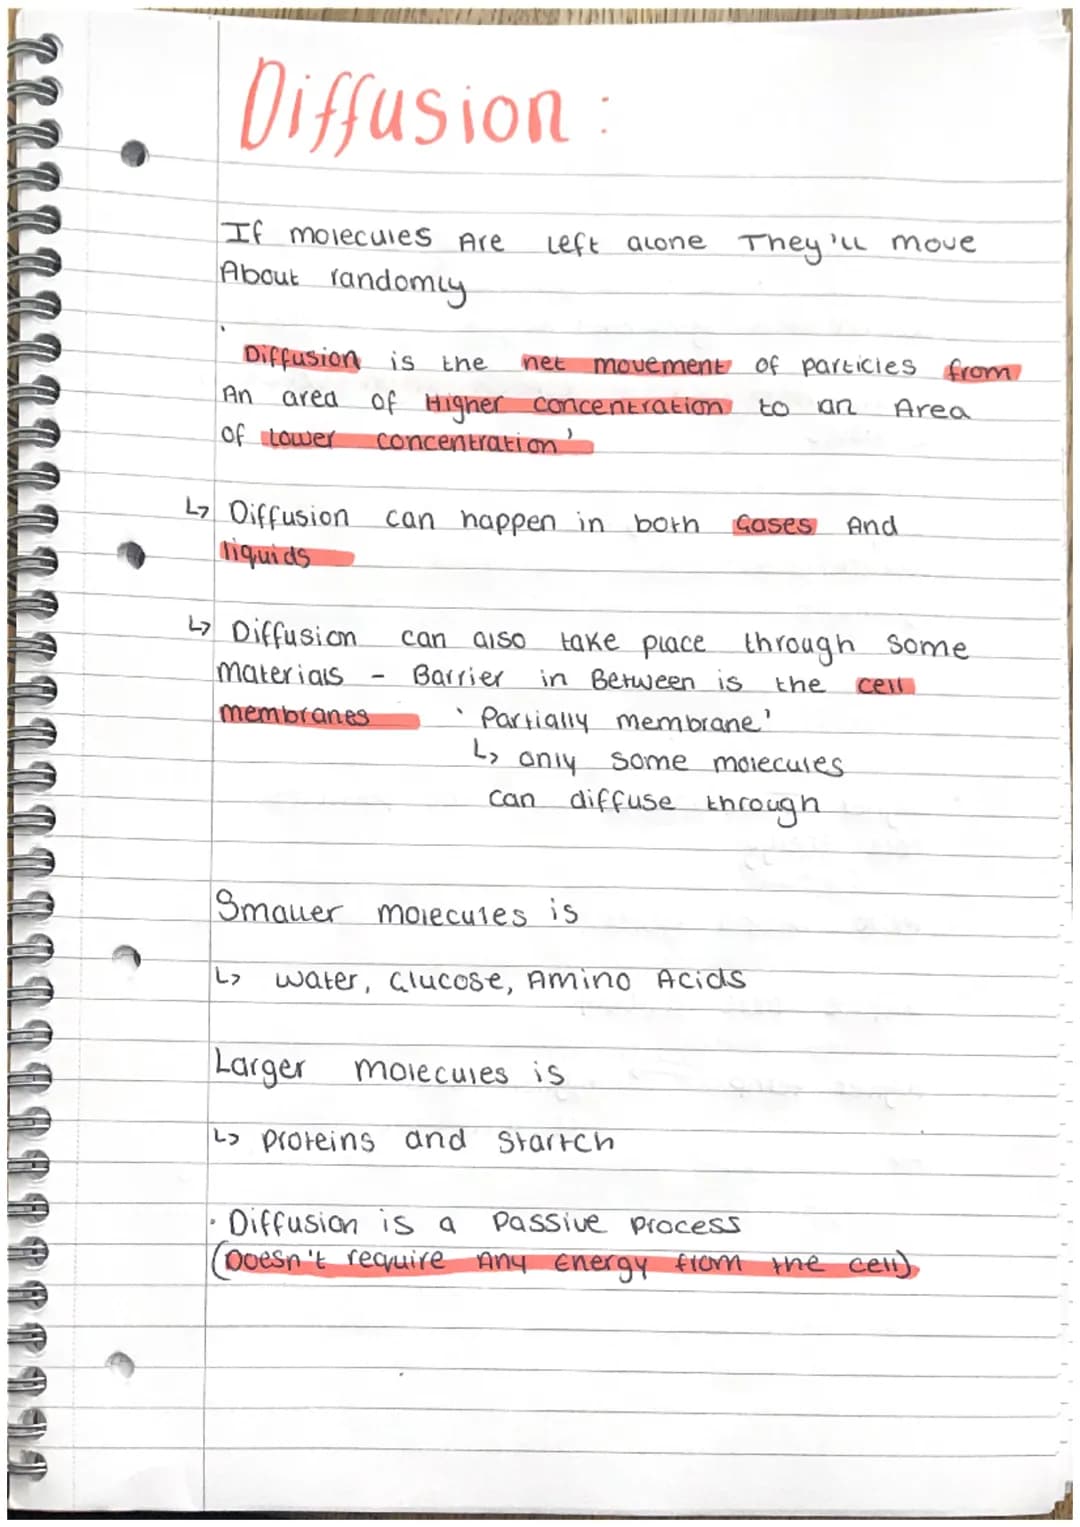 Diffusion :
If molecules Are Left alone They'll move
About randomly
' Diffusion is the net movement of particles from
An area of Higher concentration to an Area
of Lower concentration'
↳ Diffusion can happen in both Gases And
liquids
↳ Diffusion can also take place through Some
Materials - Barrier in Between is the cell
membranes ' Partially membrane'
↳ only some molecules
can diffuse through
Smaller molecules is
↳ water, Glucose, Amino Acids
Larger molecules is
↳ Proteins and Startch
· Diffusion is a Passive Process
(Doesn't require Any Energy from the cell)